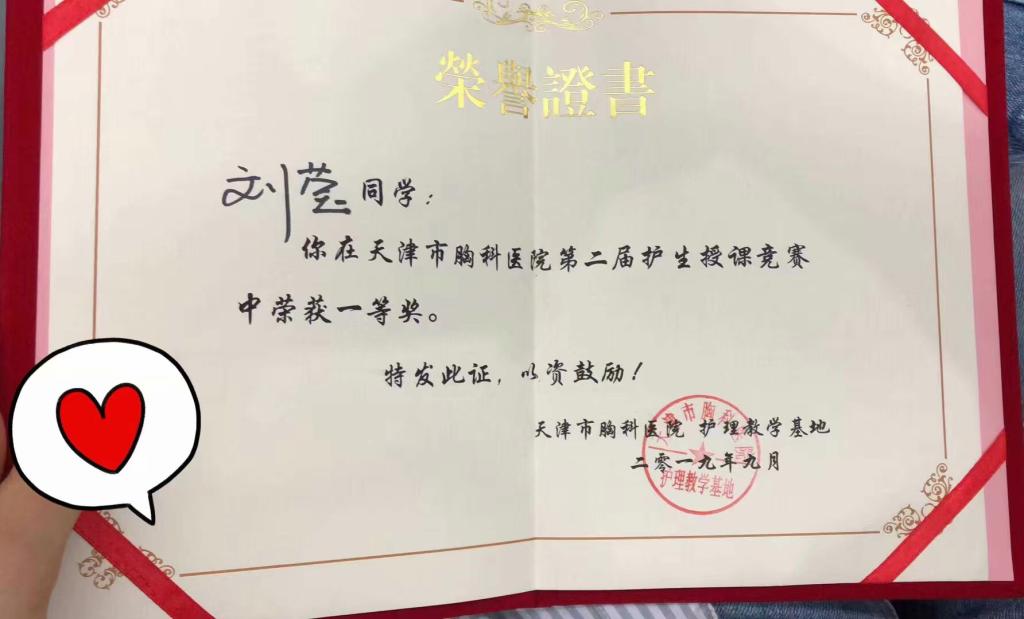 榮譽證書
刘莹同学：
你在天津市胸科医院第二届护生授课竞赛
中荣获一等奖。
特发此证，以资鼓励！
天津市胸科医院 护理教学基地
二零一九年九月
天津市胸科医院
护理教学基地